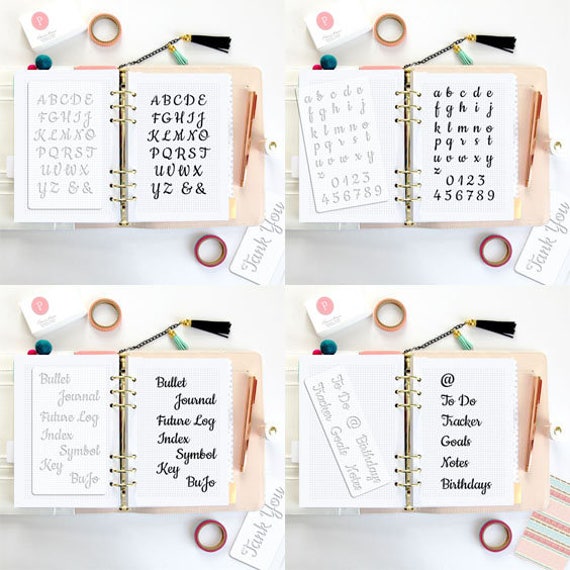 P
ABCDE
FGHIJ
KLMNO
PQRST
UVWX
YZ &&
ABCDE
FGHIJ
KLMNO
PQRST
UVWX
YZ &&
Tank You
P
a b c d e
f g h i j
k l m n o
p q r s t
u v w x y
z
0123
456789
a b c d e
f g h i j
k l m n o
p q r s t
u v w x y
z
0123
456789
Tank You
P
Bullet
Journal
Future Log
Index
Symbol
Key
BuJo
Bullet
Journal
Future Log
Index
Symbol
Key
BuJo
Tank You
P
To Do @ Birthdays
Tracker Goals Notes
@
To Do
Tracker
Goals
Notes
Birthdays